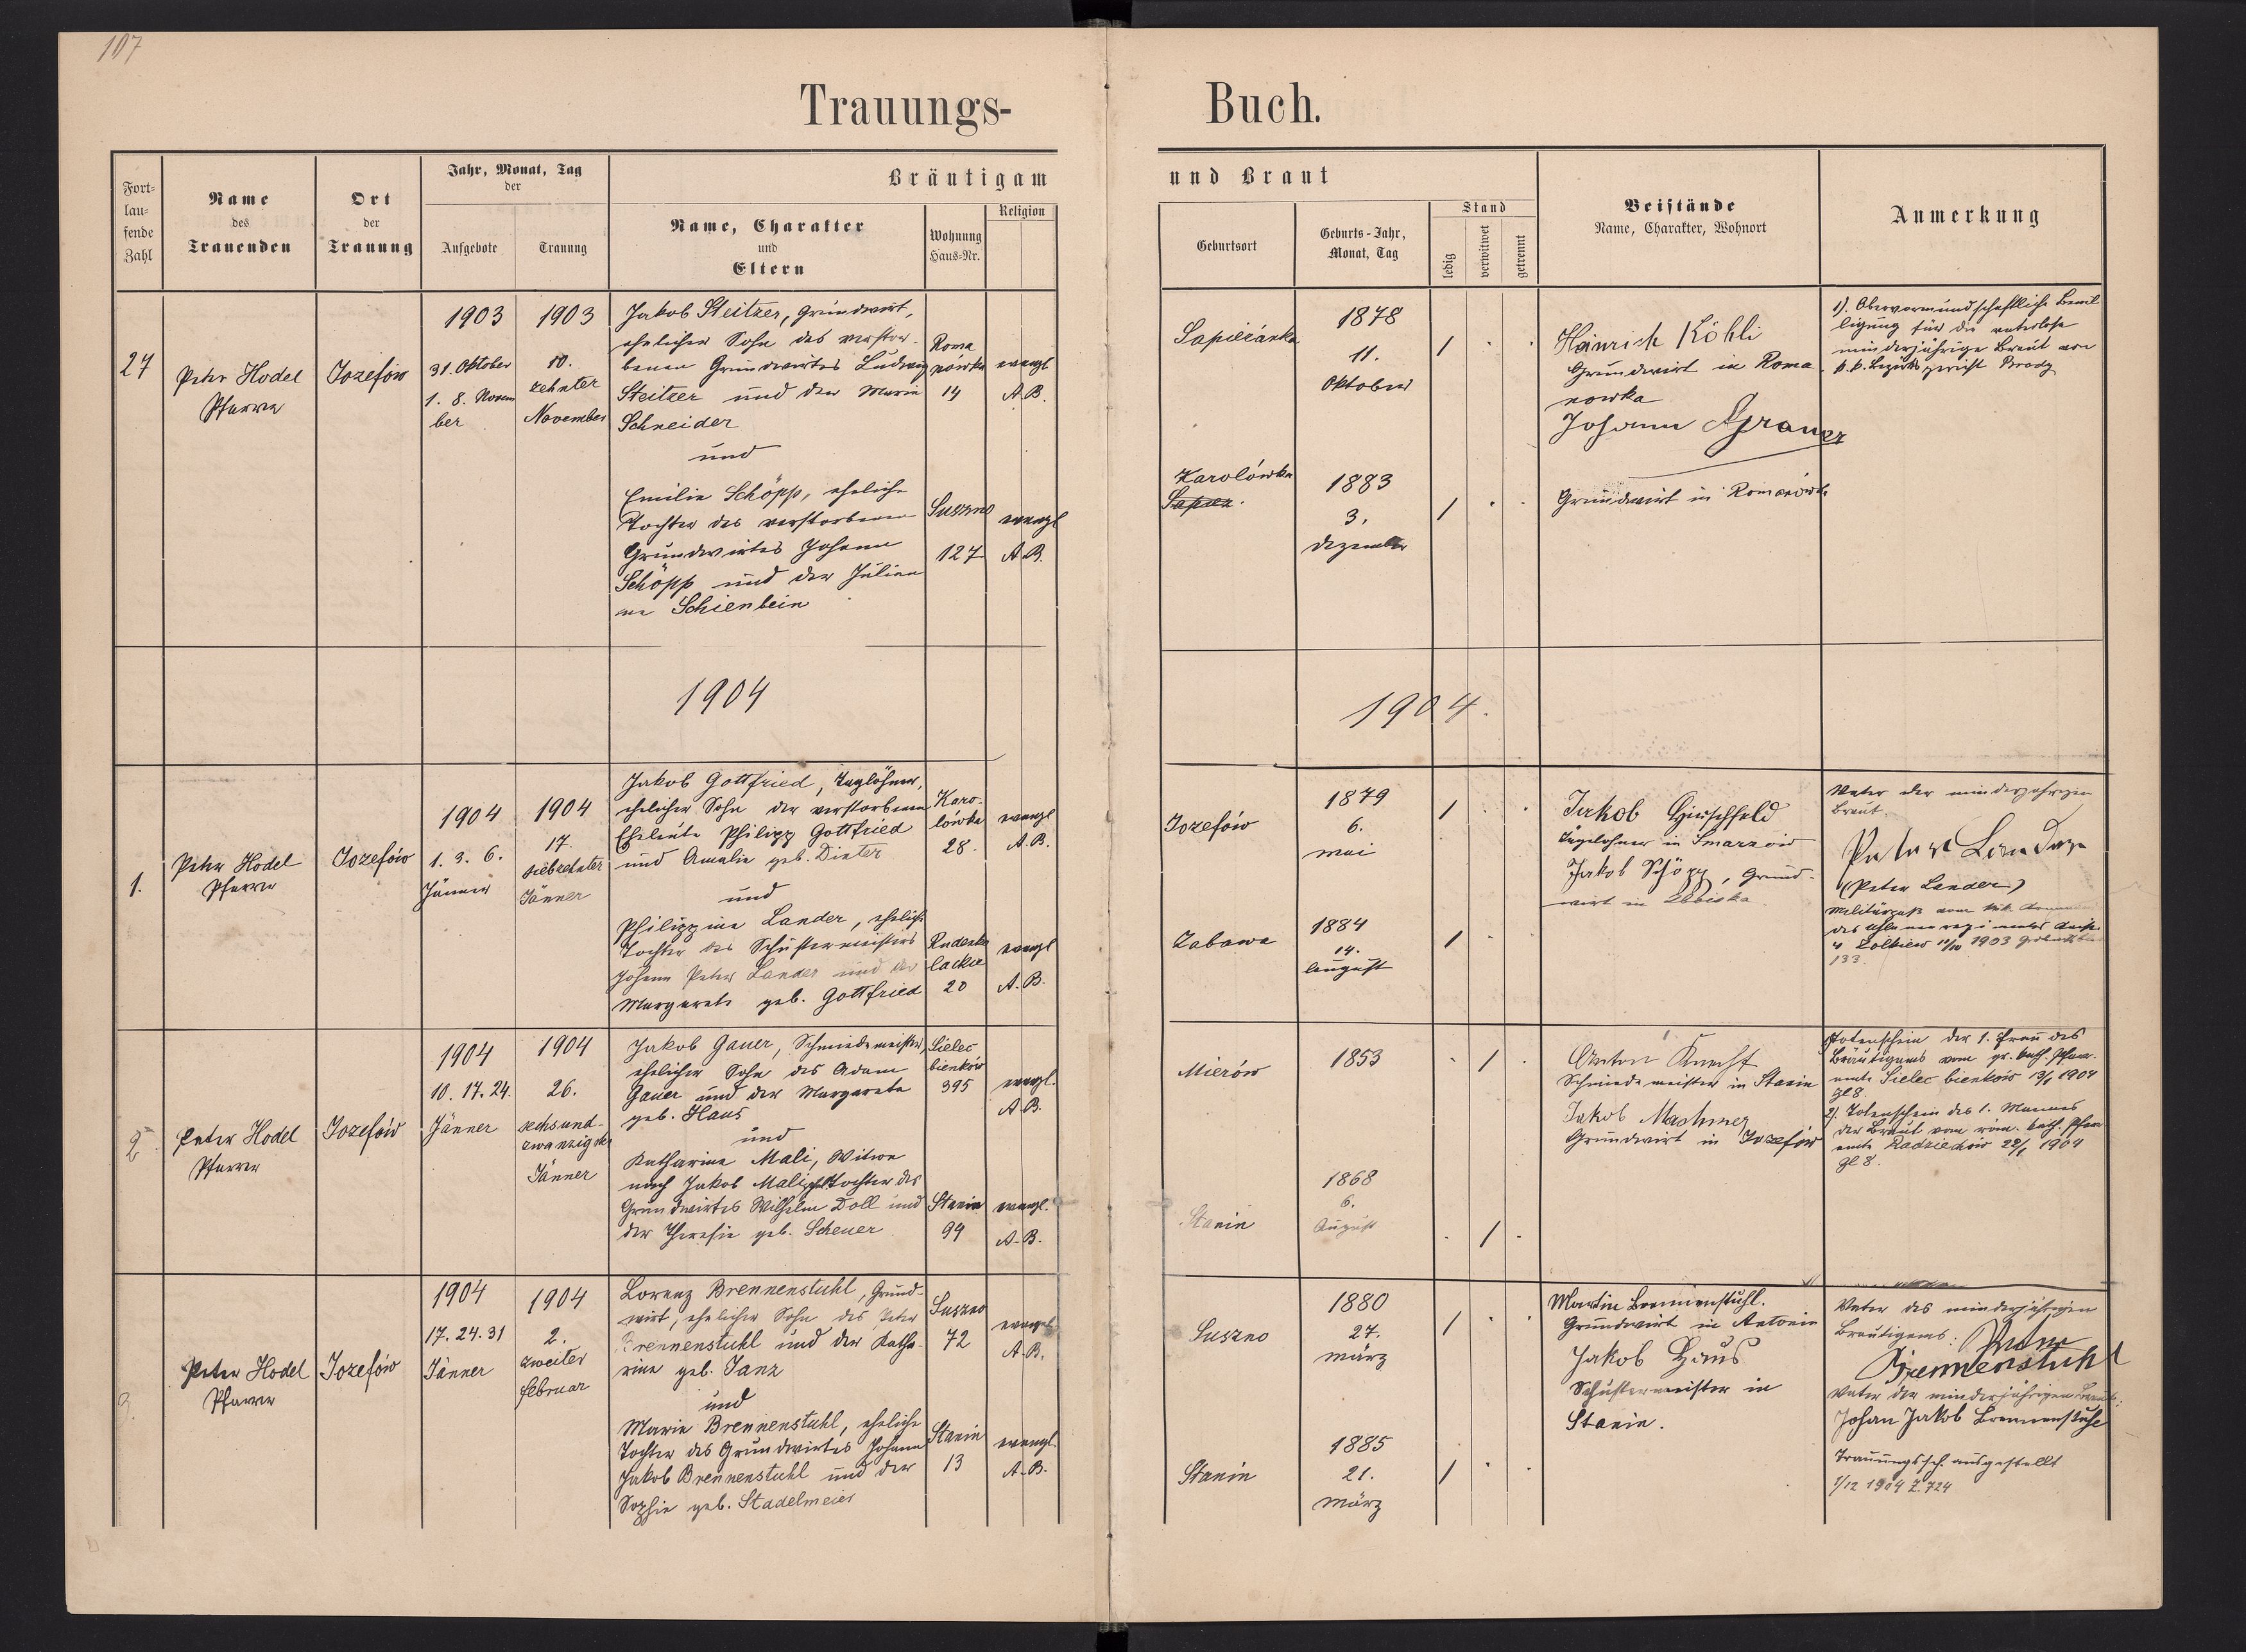 107
Trauungs-Buch.
Fort-
lau-
fende
Zahl
Name
des
Trauenden
Ort
der
Trauung
Jahr, Monat, Tag
der
Aufgebote
Trauung
Bräutigam
Name, Charakter
und
Eltern
Wohnung
Haus-Nr.
Religion
und Braut
Geburtsort
Geburts-Jahr,
Monat, Tag
Stand
ledig
verwitwet
getrennt
Beistände
Name, Charakter, Wohnort
Anmerkung
27
Peter Hodel
Pfarrer
Jozefów
1903
31. Oktober
1. 8. Novem
ber
1903
10.
zehnter
November
Jakob Steitzer, Grundwirt,
ehelicher Sohn des verstor-
benen Grundwirtes Ludwig
Steitzer und der Marie
Schneider
und
Emilie Schöpp, eheliche
Tochter des verstorbenen
Grundwirtes Johann
Schöpp und der Julian
ne Schienbein
Roma
nówka
14
evangl
A.B.
Suszno
127
evangl
A.B.
Sapieżanka
1878
11.
Oktober
/
Karolówka
1883
3.
Dezember
/
Heinrich Köhli
Grundwirt in Roma
nowka
Johann
Grundwirt in Romanówka
1). Obervormundschaftliche Bewil
ligung für die vaterlose
minderjährige Braut von
k.k. Bezirksgericht Brody
1904
1904.
1.
Peter Hodel
Pfarrer
Jozefów
1904
1. 3. 6.
Jänner
1904
17.
siebzehnter
Jänner
Jakob Gottfried, Taglöhner,
ehelicher Sohn der verstorbenen
Eheleute Philipp Gottfried
und Amalie geb. Dieter
und
Philippine Lander, eheliche
Tochter des Schustermeisters
Johann Peter Lander und der
Margarete geb. Gottfried
Karo-
lówka
28.
evangl
A.B.
Rudenko
lackie
20
evangl
A.B.
Jozefów
1879
6.
Mai
/
Zabawa
1884
14.
August
/
Jakob Hirschfeld
Tagelohner in Smarzów
Jakob Schöpp, Grund-
wirt in
Vater der minderjährigen
Braut.
Peter Lander
(Peter Lander)
Militärpaß vom
des Uhlanenregimentes
4 Zolkiew 1903
133.
2.
Peter Hodel
Pfarrer
Jozefów
1904
10. 17. 24.
Jänner
1904
26.
sechsund-
zwanzigster
Jänner
Jakob Gauer, Schmiedemeister,
ehelicher Sohn des Adam
Gauer und der Margarete
geb. Haus
und
Katharina Mali, Witwe
nach Jakob Mali Tochter des
Grundwirtes Wilhelm Doll und
der Theresie geb. Scheuer
Sielec
bienków
395
evangl.
A.B.
Stanin
94
evangl.
A.B.
Mierów
1853
/
Stanin
1868
6.
August
/
Anton Knecht
Schmiedemeister in Stanin
Jakob Machmer
Grundwirt in Jozefów
Totenschein der 1. Frau des
Bräutigams vom gr. kath. Pfarr-
amte Sielec bienków 13/1 1904
Zl 8.
2). Totenschein des 1. Mannes
der Braut vom röm. kath. Pfarr
amte Radziechów 22/1 1904
Zl 8.
3.
Peter Hodel
Pfarrer
Jozefów
1904
17. 24. 31
Jänner
1904
2.
zweiter
Februar
Lorenz Brennenstuhl, Grund-
wirt, ehelicher Sohn des Peter
Brennenstuhl und der Katha-
rina geb. Janz
und
Marie Brennenstuhl, eheliche
Tochter des Grundwirtes Johann
Jakob Brennenstuhl und der
Sophie geb. Stadelmeier
Suszno
72
evangl
A.B.
Stanin
13
evangl.
A.B.
Suszno
1880
27.
März
/
Stanin
1885
21.
März
/
Martin Brennenstuhl.
Grundwirt in Antonin
Jakob Haus
Schustermeister in
Stanin.
Vater des minderjährigen
Bräutigams: Peter
Brennenstuhl
Vater der minderjährigen Braut:
Johan Jakob Brennenstuhl
Trauungssch. ausgestellt
1/12 1904 Z. 724